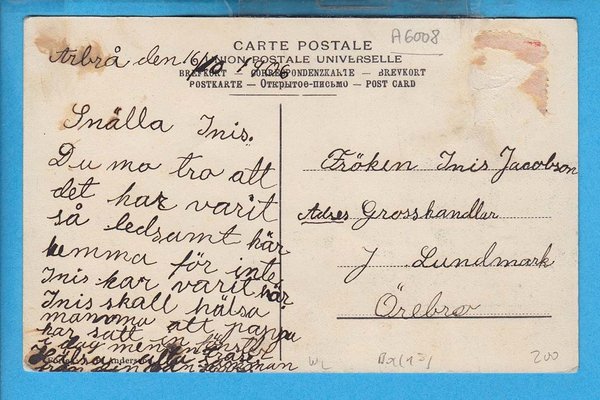 A6008
CARTE POSTALE
Arbrå den 16/10 1906
UNION POSTALE UNIVERSELLE
BREVKORT — CORRESPONDENZKARTE — BREVKORT
POSTKARTE — Открытое-письмо — POST CARD
Snälla Inis.
Du mo tro att
det har varit
så ledsamt här
hemma för inte
Inis har varit här
Inis skall hälsa
mamma att pappa
har satt in
i dag
Fröken Inis Jacobson
Adres Grosshandlar
J Lundmark
Örebro
200